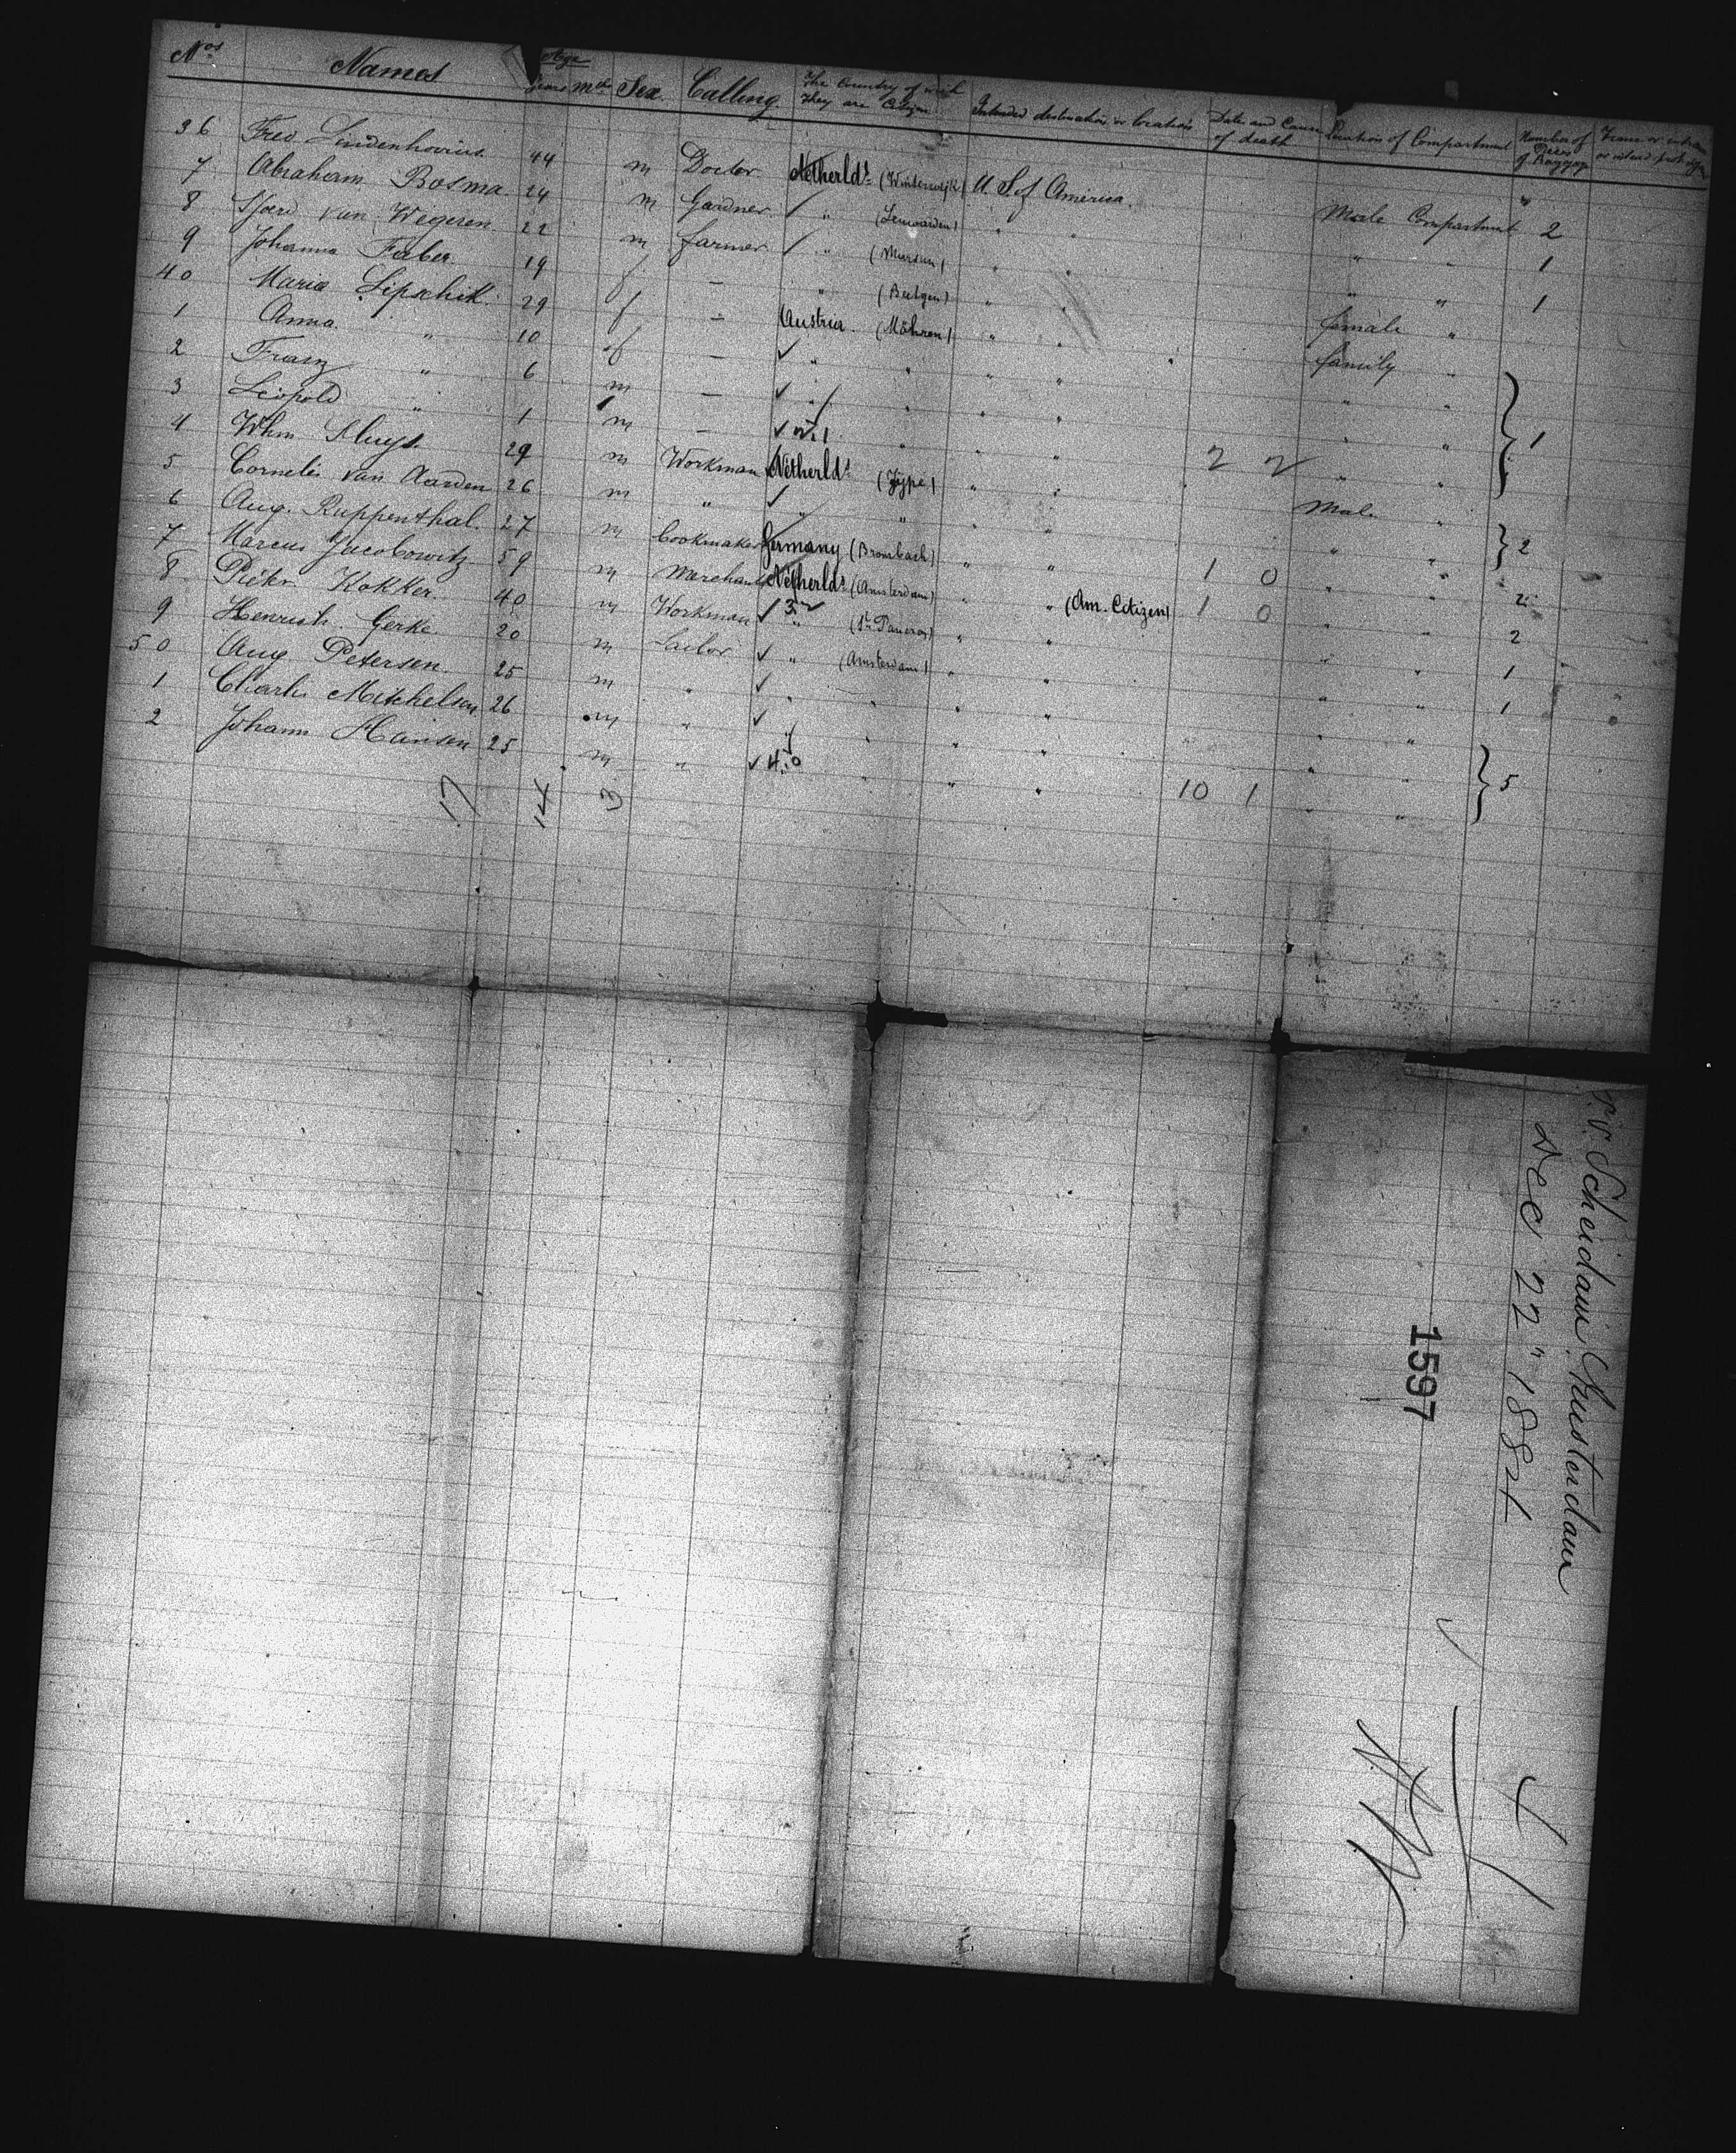 Nos Names Age Years Mth Sex Calling The Country of wich they are Citizen Intended destination or location Date and Cause of death Location of Compartment Number of Pieces of Baggage
36 Fred Lindenhovius 44 m Doctor Netherlds (Winterwijk) U S of America Male Compartment 2
7 Abraham Bosma 24 m Gardner " (Leuwarden) " " " " 1
8 Sjoerd van Wegeren 22 m farmer " (Marsum) " " " " 1
9 Johanna Faber 19 f - " " " female "
40 Maria Lipschik 29 f - Austria (Mähren) " " family "
1 Anna " 10 f - " " " " " "
2 Franz " 6 m - " " " " " " 1
3 Leopold " 1 m - " " " " 2 2 " "
4 Whm Sluys 29 m Workman Netherlds (Zijpe) " " Male "
5 Cornelis van Aarden 26 m " " " " " " " 2
6 Aug. Ruppenthal 27 m Cookmaker Germany (Brombach) " " 1 0 " " 2
7 Marcus Jacobowitz 59 m Merchant Netherlds (Amsterdam) " " (Am. Citizen) 1 0 " " 2
8 Pieter Kokker 40 m Workman 3 " (St Pancras) " " " " 1
9 Henrich Gerke 20 m Tailor " (Amsterdam) " " " " 1
50 Aug Petersen 25 m " " " " " " "
1 Charles Mitchelson 26 m " " " " " " " 5
2 Johann Hansen 25 m " 40 " " " 10 1 " "
17 14 3
Scheidam Amsterdam
Dec 22" 1884
1597